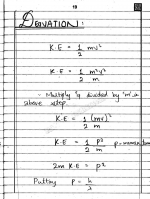 19
DERIVATION:
K·E = 1/2 mv²
K·E = 1/2 m²v²/m
- Multiply & divided by 'm' in
above step.
K·E = 1/2 (mv)²/m
K·E = 1/2 P²/m P=momentum
2m K·E = P²
Putting P = h/λ